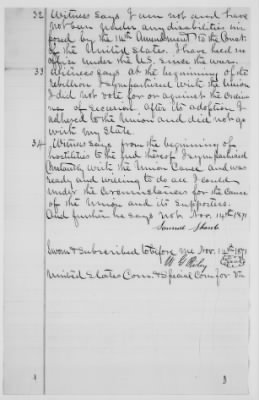 32 Witness Says I am not and have
not been under any disabilities im
posed by the 14th Amendment to the Const.
of the United States. I have held no
office under the U.S. since the war.
33 Witness Says at the beginning of the
rebellion I sympathised with the Union
I did not vote for or against the Ordin
nce of Secession after its adoption I
adhered to the Union and did not go
with my State.
34 Witness Says from the beginning of
hostilities to the end thereof I sympathised
Constantly with the Union Cause and was
ready and willing to do all I could
under the Circumstances for the Cause
of the Union and its Supporters.
And further he says not Nov. 14th 1871
Samuel Shank
Sworn & Subscribed to before me Nov. 14th 1871
W. G. Riley
United States Com. & Special Com for Va
3